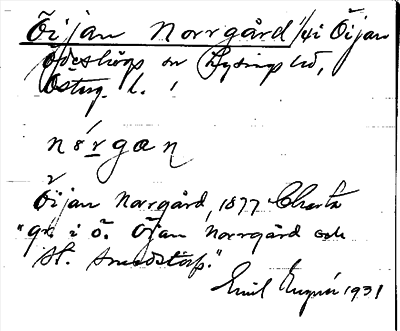 Öijan Norrgård 1/4 i Öijan
Ödeshögs sn Lysings hd,
Östg. l.
nórgan
Öijan Norrgård, 1877 Charta
"gr. i ö. Öjan Norrgård och
St. Smedstorp."
Emil 1931